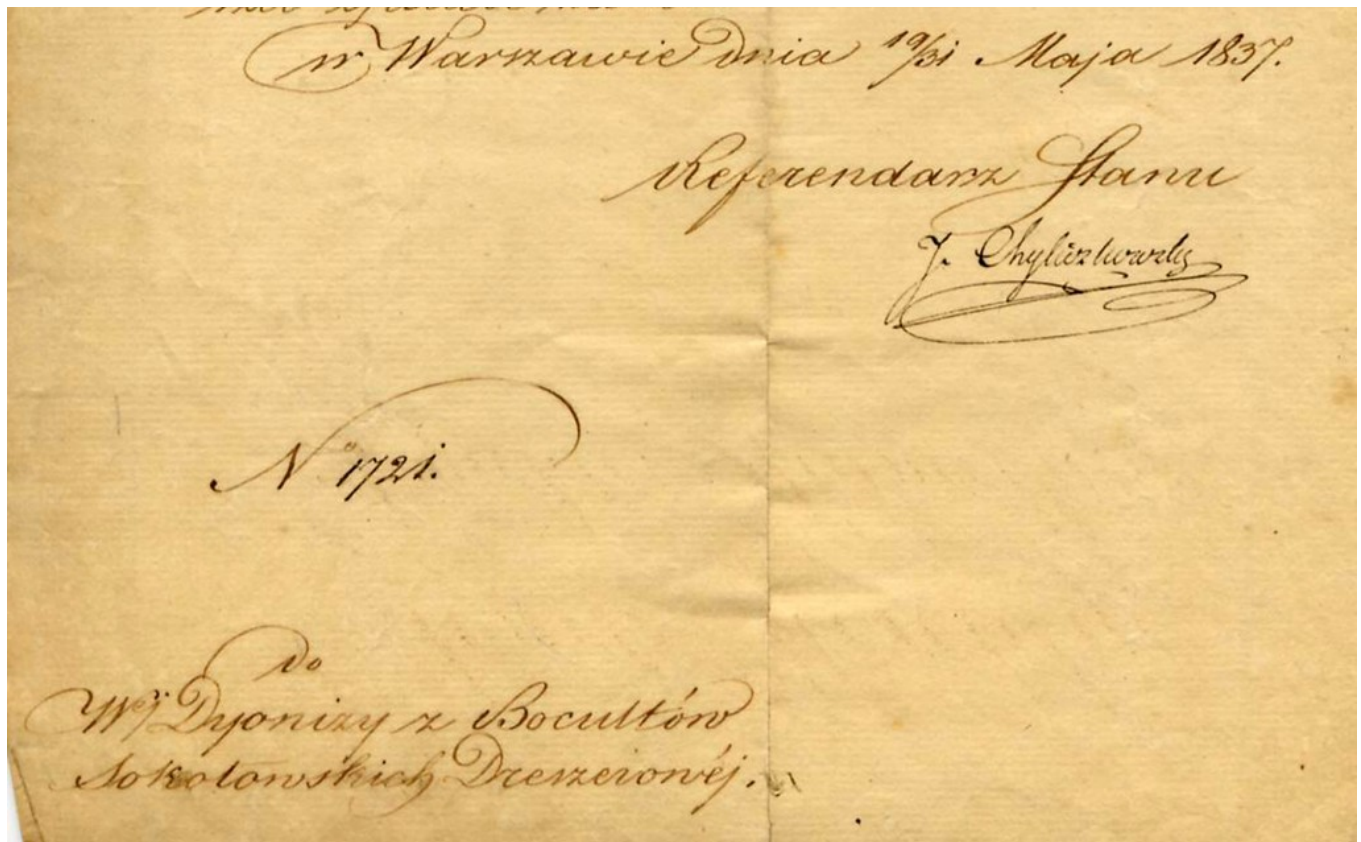 w Warszawie dnia 19/31 Maja 1837.
Referendarz Stanu
J.
No 1721.
Do
Wj Dyonizy z Bocultów
Sokołowskich Dreszerowéj.